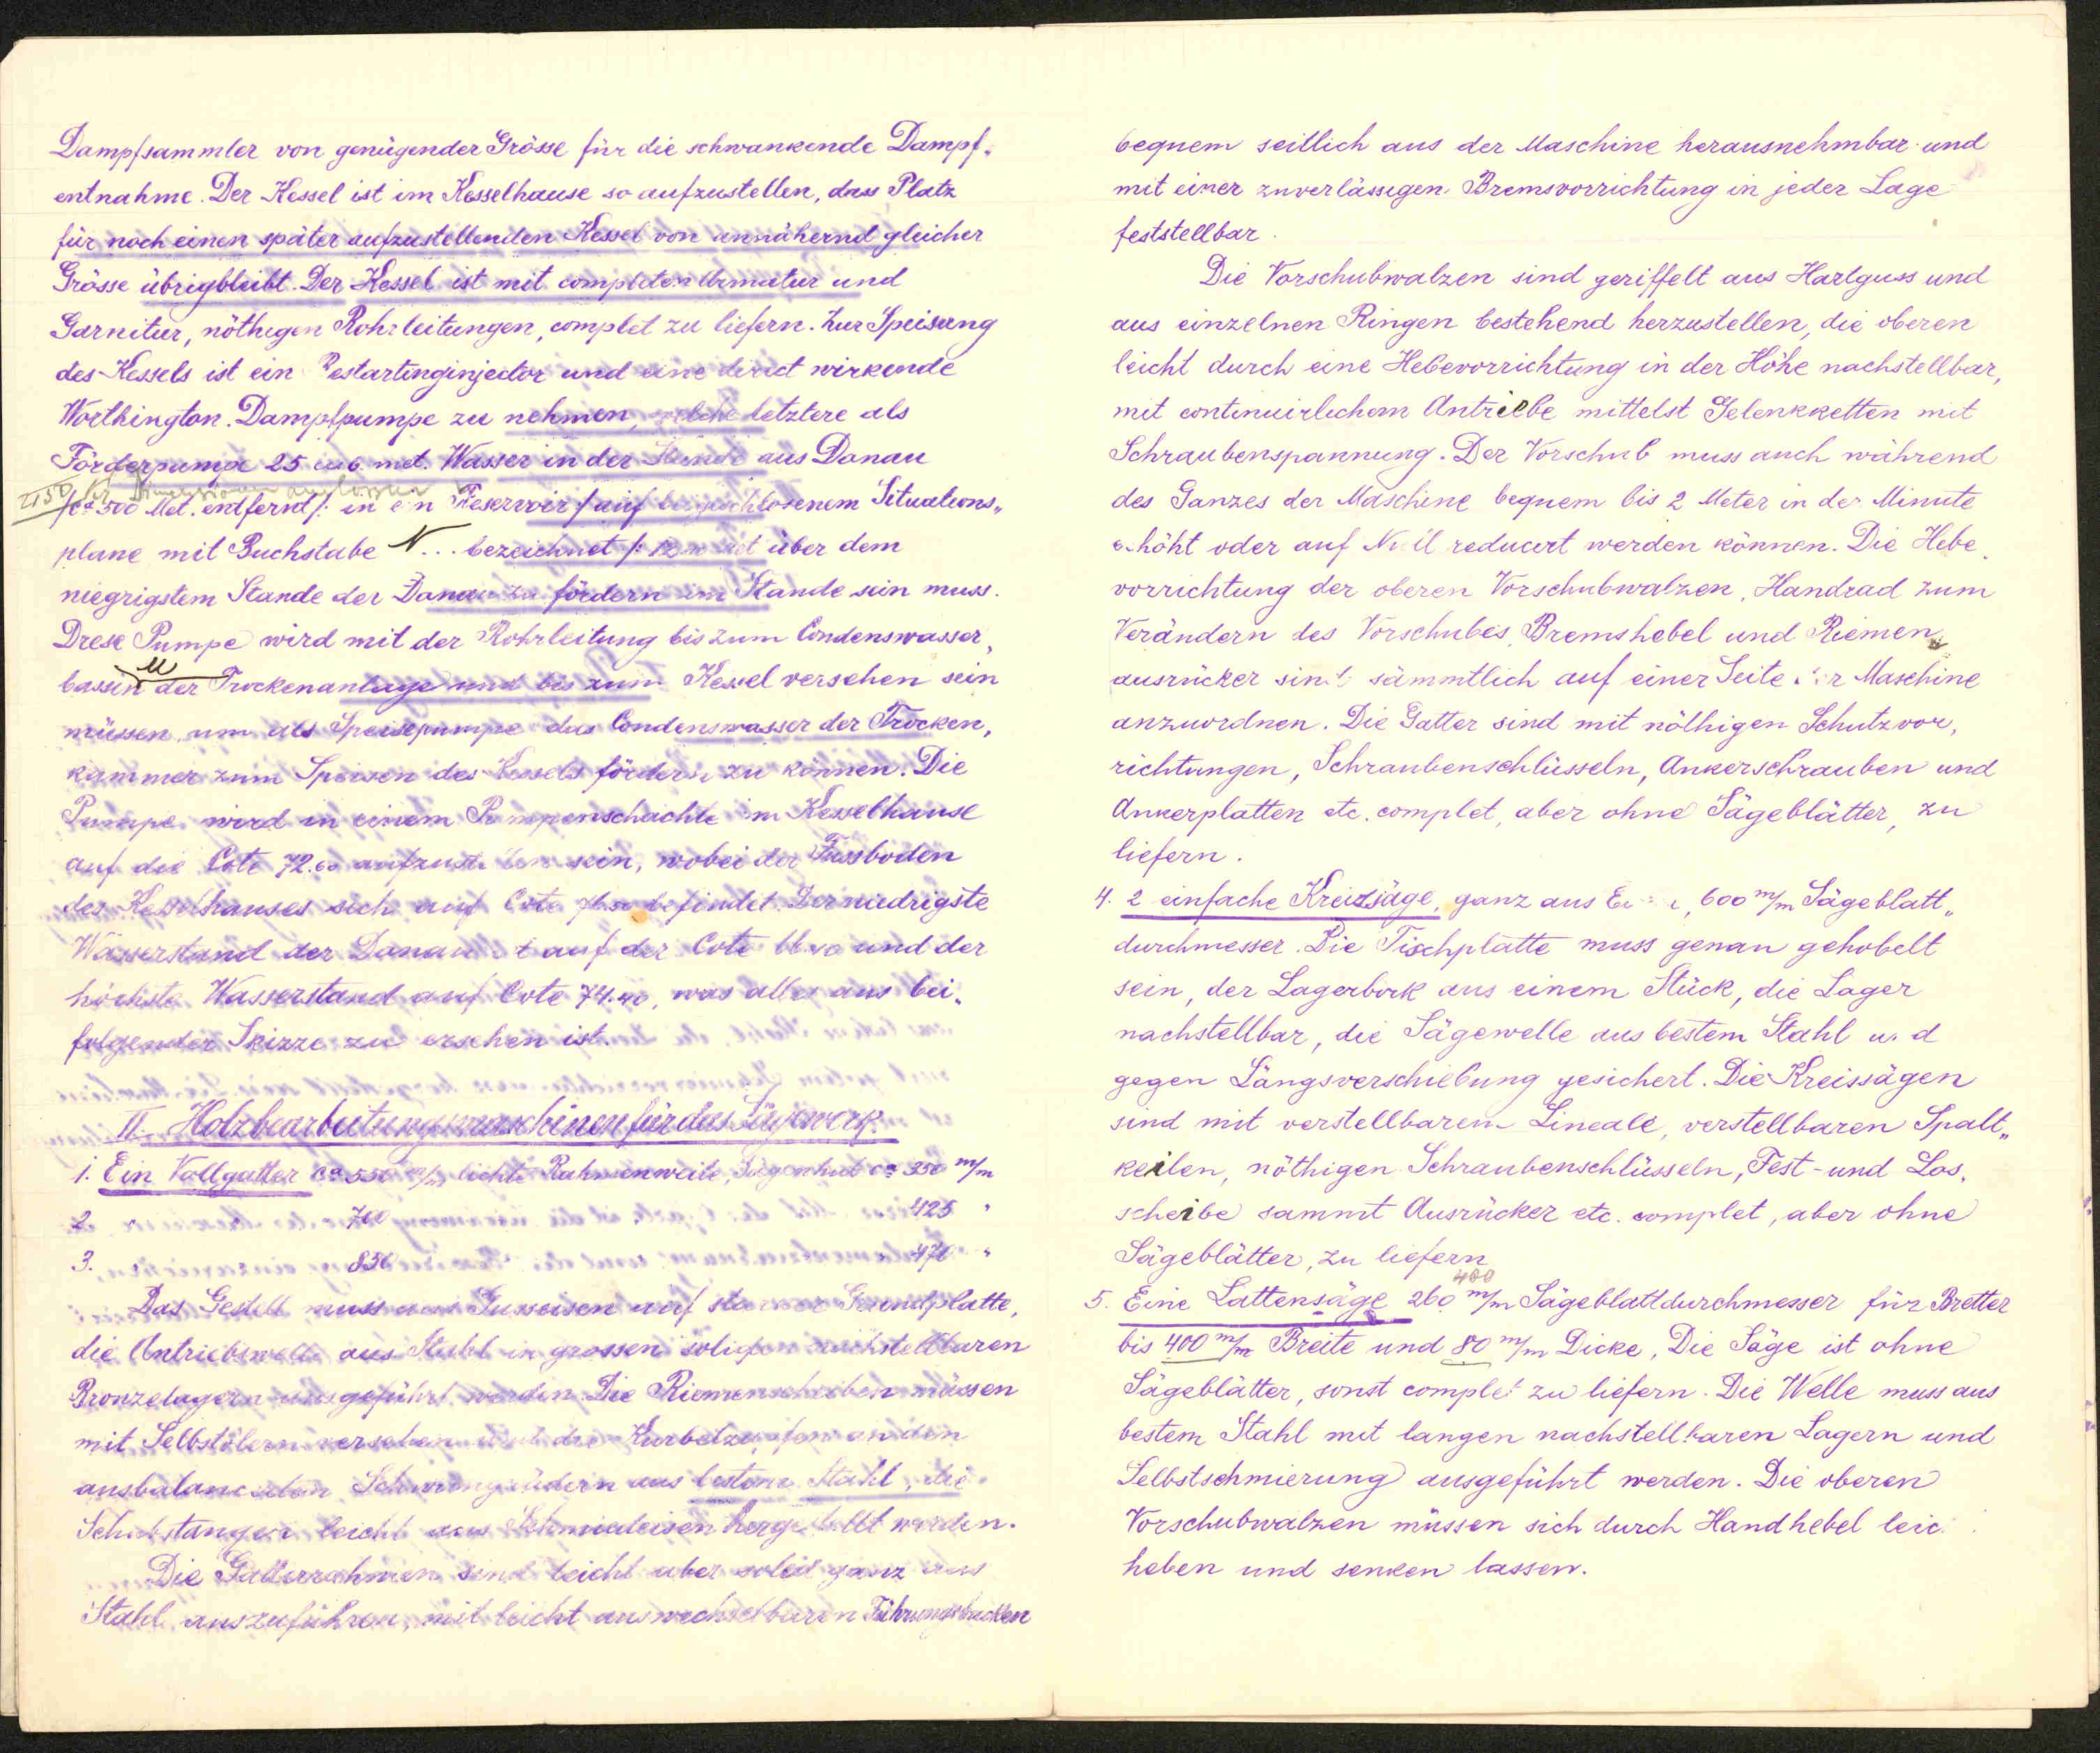 Dampfsammler von genügender Grösse für die schwankende Dampf„
entnahme. Der Kessel ist im Kesselhause so aufzustellen, dass Platz
für noch einen später aufzustellenden Kessel von annähernd gleicher
Grösse übrigbleibt. Der Kessel ist mit completer Armatur und
Garnitur, nöthigen Rohrleitungen, complet zu liefern. Zur Speisung
des Kessels ist ein Restartinginjector und eine direct wirkende
Worthington-Dampfpumpe zu nehmen, welche letztere als
Förderpumpe 25 cub. met. Wasser in der Stunde aus Donau
/:ca 500 Met. entfernt:/ in ein Reservoir /auf beigeschlosenem Situations„
plane mit Buchstabe N... bezeichnet /: über dem
niegrigstem Stande der Donau zu fördern im Stande sein muss.
Diese Pumpe wird mit der Rohrleitung bis zum Condenswasser„
bassin der Trockenanlage und bis zum Kessel versehen sein
müssen um als Speisepumpe das Condenswasser der Trocken„
kammer zum Speisen des Kessels fördern zu können. Die
Pumpe wird in einem Pumpenschachte im Kesselhause
auf die Cote 72.60 aufzustellen sein, wobei der Fussboden
des Kesselhauses sich auf Cote befindet. Der niedrigste
Wasserstand der Donau ist auf der Cote und der
höchste Wasserstand auf Cote 74.40, was alles aus bei„
folgender Skizze zu ersehen ist.
II. Holzbearbeitungsmaschinen für das Sägewerk.
1. Ein Vollgatter ca 550 m/m lichte Rahmenweite, Sägenhub ca 350 m/m
2. " " 700 " 425 "
3. " " 850 " 470 "
Das Gestell muss aus Gusseisen auf starker Grundplatte,
die Antriebswelle aus Stahl in grossen soliden nachstellbaren
Bronzelagern ausgeführt werden. Die Riemenscheiben müssen
mit Selbstölern versehen und die Kurbelzapfen an den
ausbalancirten Schwungrädern aus bestem Stahl, die
Schubstangen leicht aus Schmiedeisen hergestellt werden.
Die Gatterrahmen sind leicht aber solid ganz aus
Stahl auszuführen, mit leicht auswechselbaren Führungsbacken
bequem seitlich aus der Maschine herausnehmbar und
mit einer zuverlässigen Bremsvorrichtung in jeder Lage
feststellbar.
Die Vorschubwalzen sind geriffelt aus Hartguss und
aus einzelnen Ringen bestehend herzustellen, die oberen
leicht durch eine Hebevorrichtung in der Höhe nachstellbar,
mit continuirlichem Antriebe mittelst Gelenkketten mit
Schraubenspannung. Der Vorschub muss auch während
des Ganzes der Maschine bequem bis 2 Meter in der Minute
erhöht oder auf Null reducirt werden können. Die Hebe„
vorrichtung der oberen Vorschubwalzen, Handrad zum
Verändern des Vorschubes, Bremshebel und Riemen„
ausrücker sind sämmtlich auf einer Seite der Maschine
anzuordnen. Die Gatter sind mit nöthigen Schutzvor„
richtungen, Schraubenschlüsseln, Ankerschrauben und
Ankerplatten etc. complet, aber ohne Sägeblätter, zu
liefern.
4. 2 einfache Kreizsäge, ganz aus Eisen, 600 m/m Sägeblatt„
durchmesser. Die Tischplatte muss genau gehobelt
sein, der Lagerbock aus einem Stück, die Lager
nachstellbar, die Sägewelle aus bestem Stahl und
gegen Längsverschiebung gesichert. Die Kreissägen
sind mit verstellbarem Lineale, verstellbaren Spalt„
keilen, nöthigen Schraubenschlüsseln, Fest- und Los„
scheibe sammt Ausrücker etc. complet, aber ohne
Sägeblätter, zu liefern
400
5. Eine Lattensäge 260 m/m Sägeblattdurchmesser für Bretter
bis 400 m/m Breite und 80 m/m Dicke, Die Säge ist ohne
Sägeblätter, sonst complet zu liefern. Die Welle muss aus
bestem Stahl mit langen nachstellbaren Lagern und
Selbstschmierung ausgeführt werden. Die oberen
Vorschubwalzen müssen sich durch Handhebel leicht
heben und senken lassen.